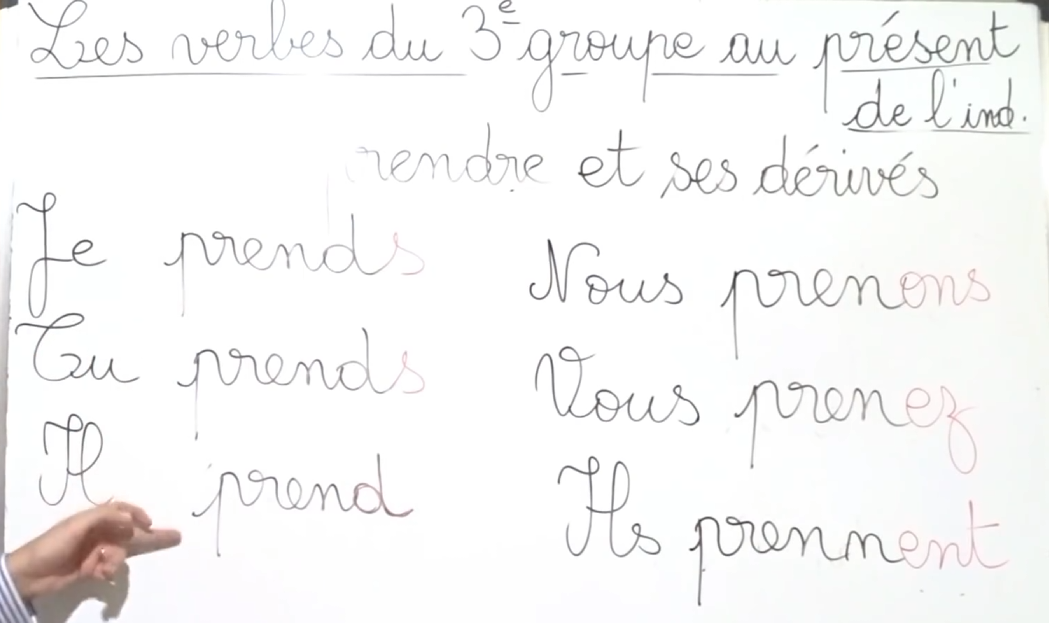 Les verbes du 3e groupe au présent
de l'ind.
rendre et ses dérivés
Je prends
Tu prends
Il prend
Nous prenons
Vous prenez
Ils prennent